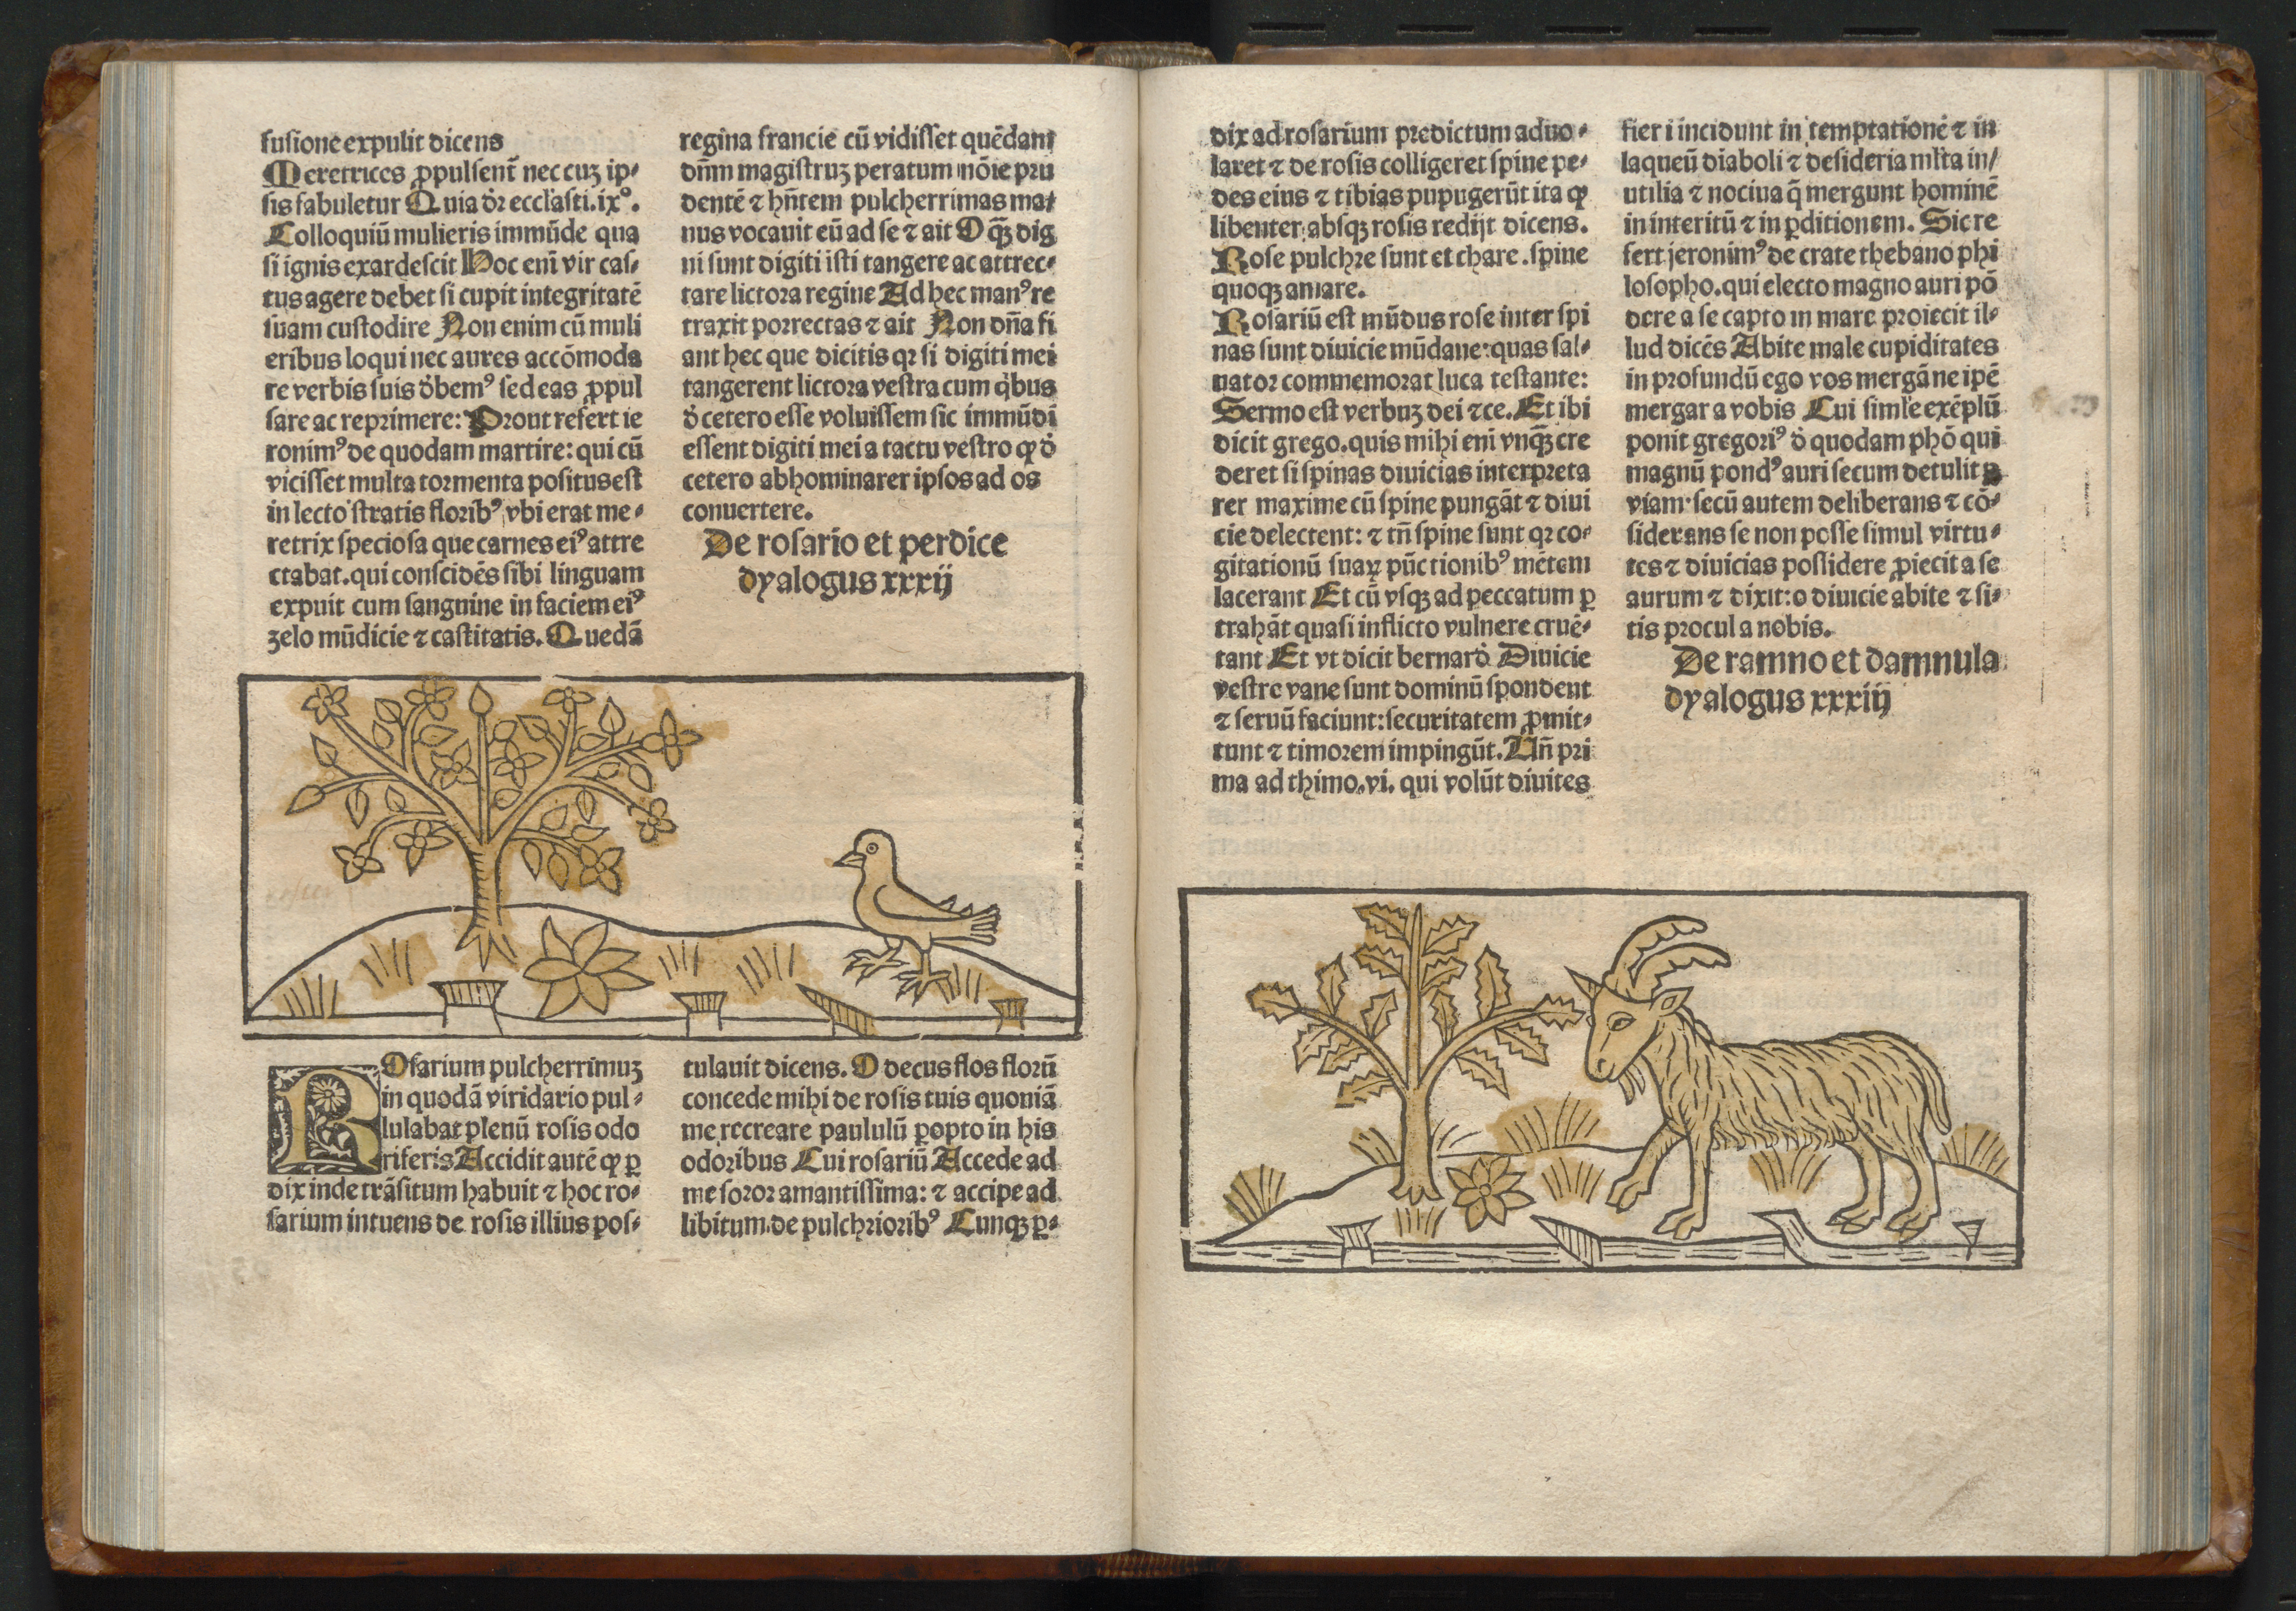 fusione expulit dicens
Meretrices ꝓpulsent̄ nec cuʒ ip⸗
sis fabuletur Quia dr̄ eccl̓asti.ixº.
Colloquiū mulieris immūde qua
si ignis exardescit Hoc enī vir cas⸗
tus agere debet si cupit integritatē
suam custodire Non enim cū muli
eribus loqui nec aures accōmoda
re verbis suis dėbemꝰ sed eas ꝓpul
sare ac reprimere: Prout refert ie
ronimꝰ de quodam martire: qui cū
vicisset multa tormenta positus est
in lecto stratis floribꝰ vbi erat me⸗
retrix speciosa que carnes eiꝰ attre
ctabat. qui conscidēs sibi linguam
expuit cum sanguine in faciem eiꝰ
zelo mūdicie ⁊ castitatis. Quedā
regina francie cū vidisset quēdam
dn̄m magistruʒ peratum nōie pru
dentē ⁊ hn̄tem pulcherrimas ma⸗
nus vocauit eū ad se ⁊ ait O qꝫ̄ dig
ni sunt digiti isti tangere ac attrec⸗
tare lictora regine Ad hec manꝰ re
traxit porrectas ⁊ ait Non dn̄a fi
ant hec que dicitis qr si digiti mei
tangerent lictora vestra cum qi̇bus
dė cetero esse voluissem sic immūdi
essent digiti mei a tactu vestro ꝙ dė
cetero abhominarer ipsos ad os
conuertere.
De rosario et perdice
dyalogus xxxij
ROsarium pulcherrimuʒ
in quodā viridario pul⸗
lulabat plenū rosis odo
riferis Accidit autē ꝙ ꝑ
dix inde trāsitum habuit ⁊ hoc ro⸗
sarium intuens de rosis illius pos⸗
tulauit dicens. O decus flos florū
concede mihi de rosis tuis quoniā
me recreare paululū ꝑopto in his
odoribus Cui rosariū Accede ad
me soror amantissima: ⁊ accipe ad
libitum de pulchrioribꝰ Cunqꝫ ꝑ⸗
dix ad rosarium predictum aduo⸗
laret ⁊ de rosis colligeret spine pe⸗
des eius ⁊ tibias pupugerūt ita ꝙ
libenter absqꝫ rosis redijt dicens.
Rose pulchre sunt et chare. spine
quoqꝫ amare.
Rosariū est mūdus rose inter spi
nas sunt diuicie mūdane: quas sal⸗
uator commemorat luca testante:
Sermo est verbuʒ dei ⁊ce. Et ibi
dicit grego. quis mihi enī vnqꝫ̄ cre
deret si spinas diuicias interpreta
rer maxime cū spine pungāt ⁊ diui
cie delectent: ⁊ tn̄ spine sunt qr co⸗
gitationū suaꝝ pūctionibꝰ mētem
lacerant Et cū vsqꝫ ad peccatum ꝑ
trahāt quasi inflicto vulnere cruē⸗
tant Et vt dicit bernardė Diuicie
vestre vane sunt dominū spondent
⁊ seruū faciunt: securitatem ꝓmit⸗
tunt ⁊ timorem impingūt. Un̄ pri
ma ad thimo. vi. qui volūt diuites
fieri incidunt in temptationē ⁊ in
laqueū diaboli ⁊ desideria ml̓ta in/
utilia ⁊ nociua q̄ mergunt hominē
in interitū ⁊ in ꝑditionem. Sic re
fert jeronimꝰ de crate thebano phi
losopho. qui electo magno auri pō
dere a se capto in mare proiecit il⸗
lud dicēs Abite male cupiditates
in profundū ego vos mergā ne ipē
mergar a vobis Cui siml̓e exēplū
ponit gregoriꝰ dė quodam phō qui
magnū pondꝰ auri secum detulit ꝑ
viam secū autem deliberans ⁊ cō⸗
siderans se non posse simul virtu⸗
tes ⁊ diuicias possidere ꝓiecit a se
aurum ⁊ dixit: o diuicie abite ⁊ si⸗
tis procul a nobis.
De ramno et damnula
dyalogus xxxiij